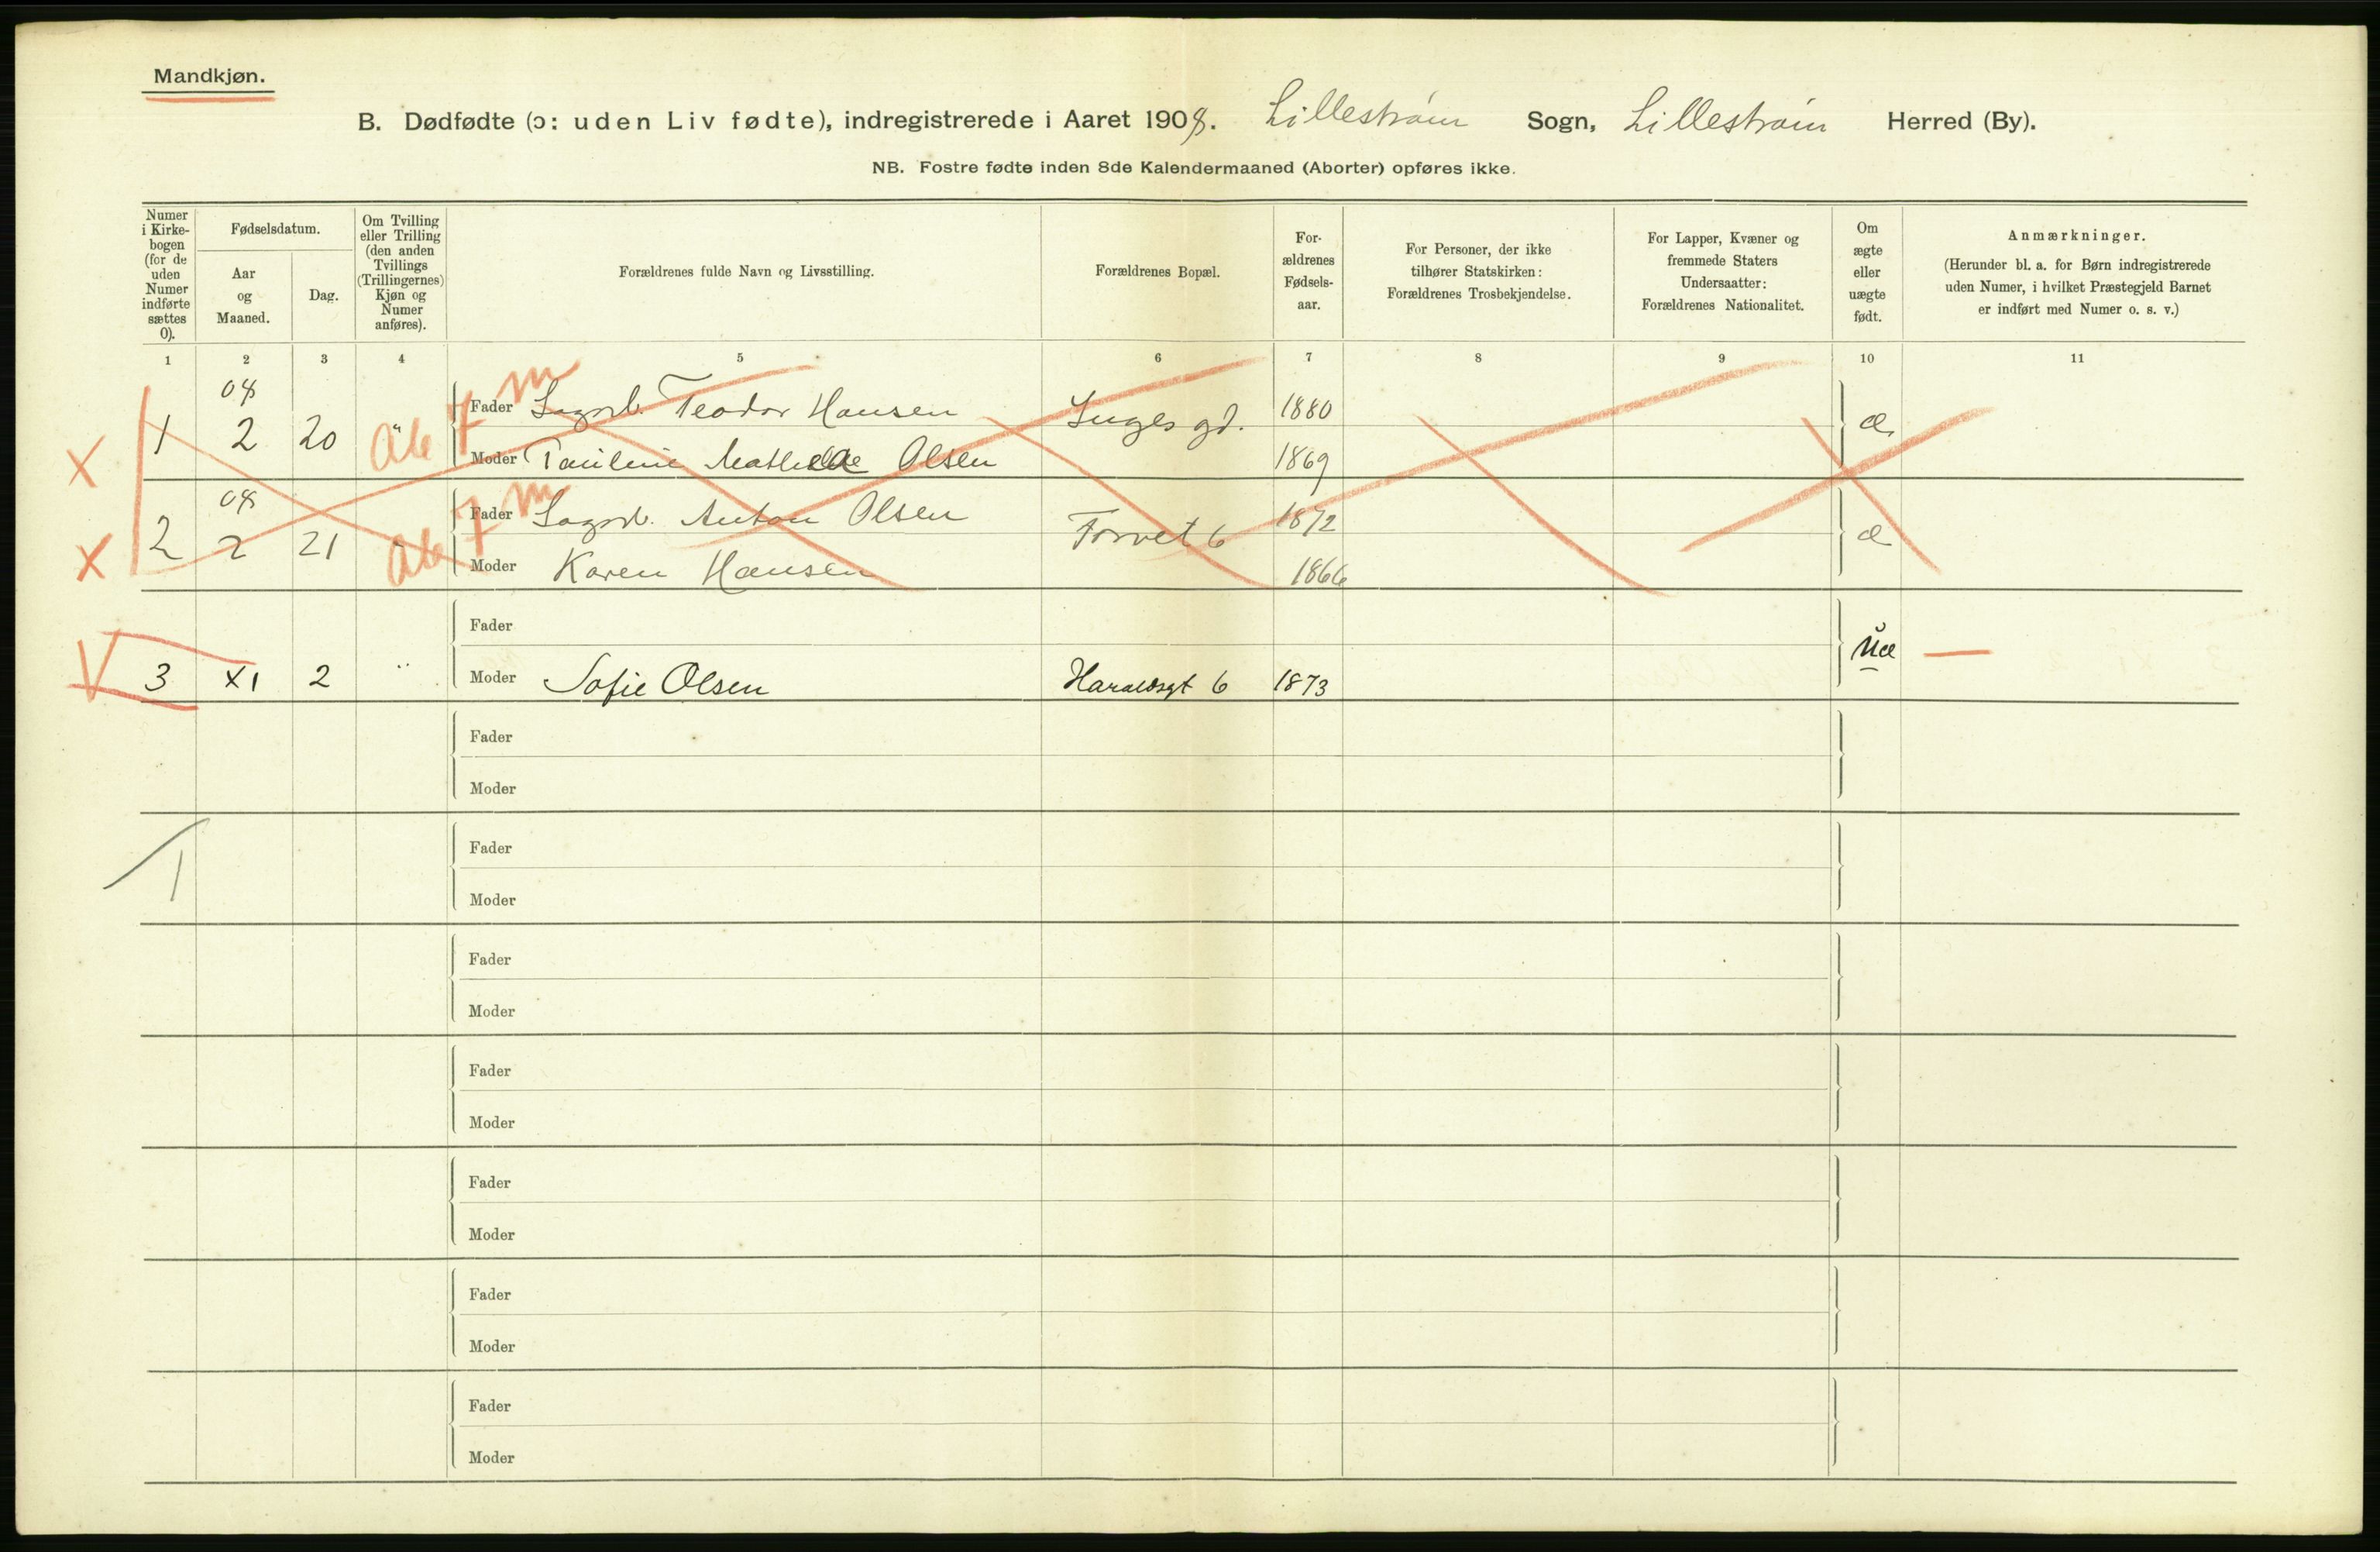 Mandkjøn.
B. Dødfødte (ɔ: uden Liv fødte), indregistrerede i Aaret 1908. Lillestrøm Sogn, Lillestrøm Herred (By).
NB. Fostre fødte inden 8de Kalendermaaned (Aborter) opføres ikke.
Numer
i Kirke-
bogen
(for de
uden
Numer
indførte
sættes
0).
Fødselsdatum.
Aar
og
Maaned.
Dag.
Om Tvilling
eller Trilling
(den anden
Tvillings
(Trillingernes)
Kjøn og
Numer
anføres).
Forældrenes fulde Navn og Livsstilling.
Forældrenes Bopæl.
For-
ældrenes
Fødsels-
aar.
For Personer, der ikke
tilhører Statskirken:
Forældrenes Trosbekjendelse.
For Lapper, Kvæner og
fremmede Staters
Undersaatter:
Forældrenes Nationalitet.
Om
ægte
eller
uægte
født.
Anmærkninger.
(Herunder bl. a. for Børn indregistrerede
uden Numer, i hvilket Præstegjeld Barnet
er indført med Numer o. s. v.)
1 2 3 4 5 6 7 8 9 10 11
08 7 m
Fader Sagarb. Teodor Hansen 1880
X 1 2 20 gd. æ
Moder Pauline Mathilde Olsen 1869
08 7 m
Fader Sagarb. Anton Olsen 1872
X 2 2 21 Torvet 6 æ
Moder Karen Hansen 1866
Fader
Uæ —
V 3 XI 2 " Moder Sofie Olsen Haraldsgt 6 1873
Fader
Moder
Fader
1
Moder
Fader
Moder
Fader
Moder
Fader
Moder
Fader
Moder
Fader
Moder